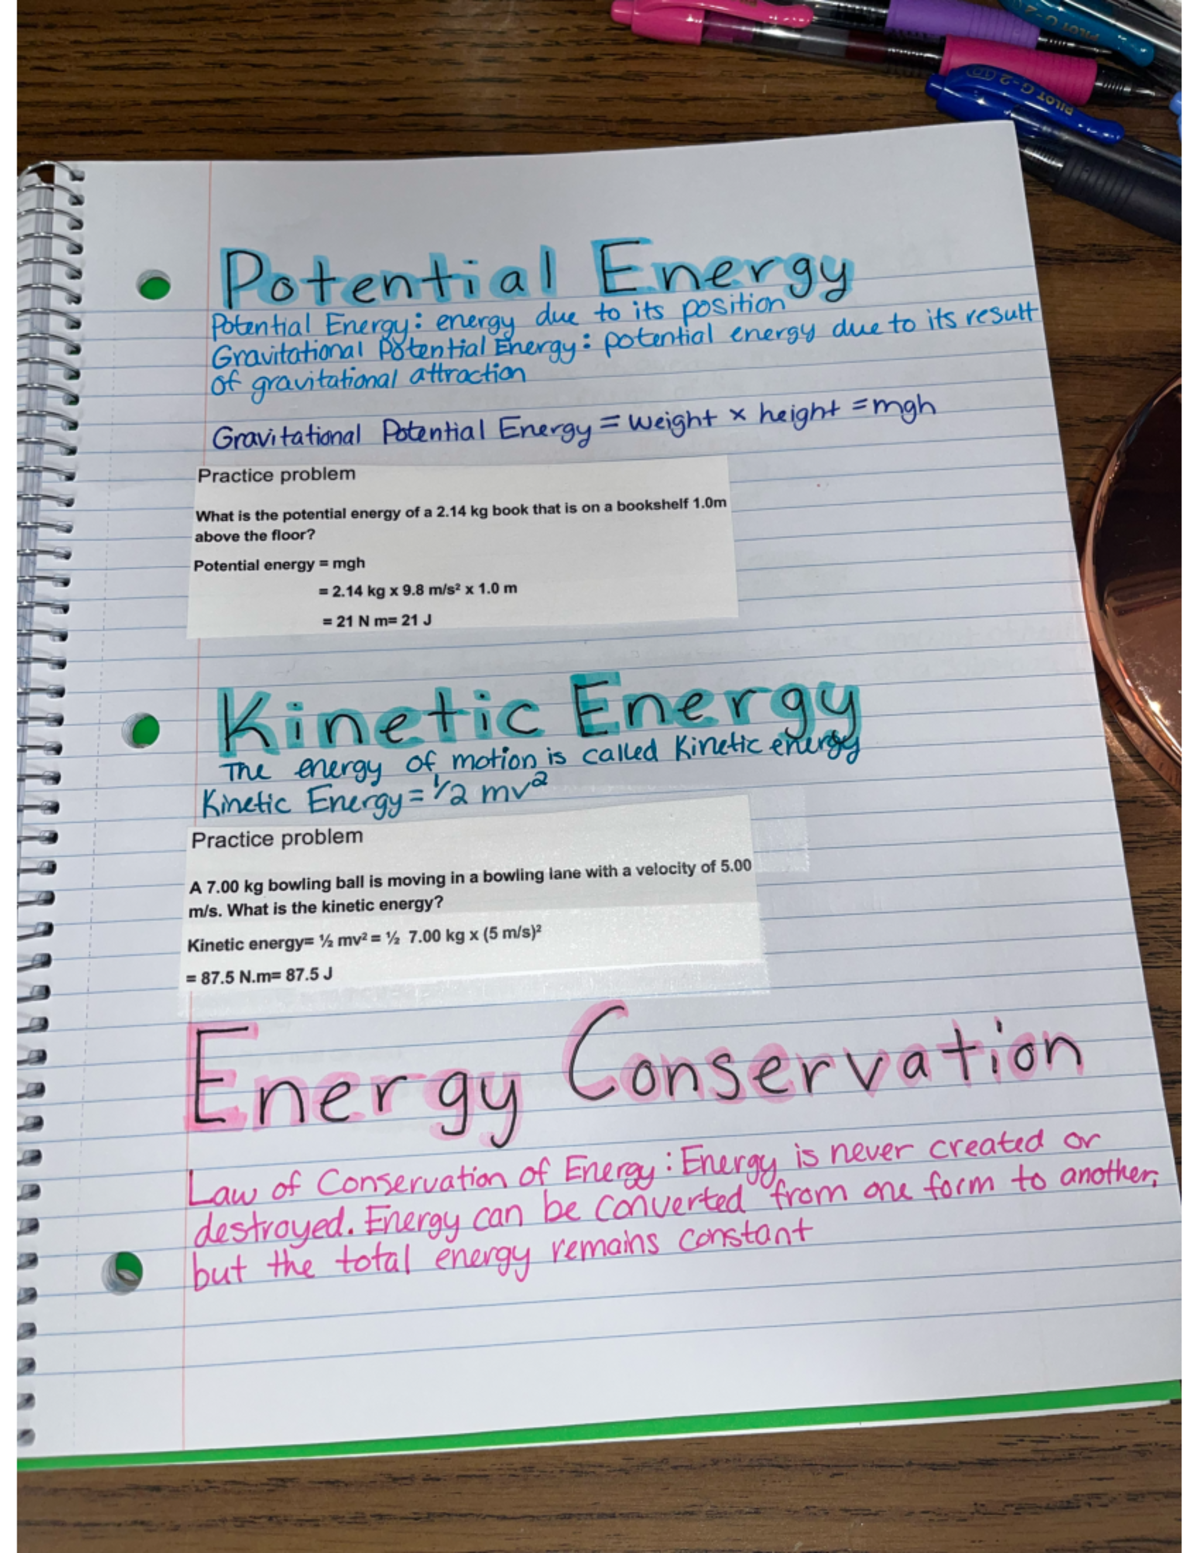 PILOT G-2
PILOT G-2
Potential Energy
Potential Energy: energy due to its position
Gravitational Potential Energy: potential energy due to its result
of gravitational attraction
Gravitational Potential Energy = weight × height = mgh
Practice problem
What is the potential energy of a 2.14 kg book that is on a bookshelf 1.0m
above the floor?
Potential energy = mgh
= 2.14 kg x 9.8 m/s² x 1.0 m
= 21 N m= 21 J
Kinetic Energy
The energy of motion is called Kinetic energy
Kinetic Energy = 1/2 mv²
Practice problem
A 7.00 kg bowling ball is moving in a bowling lane with a velocity of 5.00
m/s. What is the kinetic energy?
Kinetic energy= ½ mv² = ½ 7.00 kg x (5 m/s)²
= 87.5 N.m= 87.5 J
Energy Conservation
Law of Conservation of Energy: Energy is never created or
destroyed. Energy can be converted from one form to another,
but the total energy remains constant